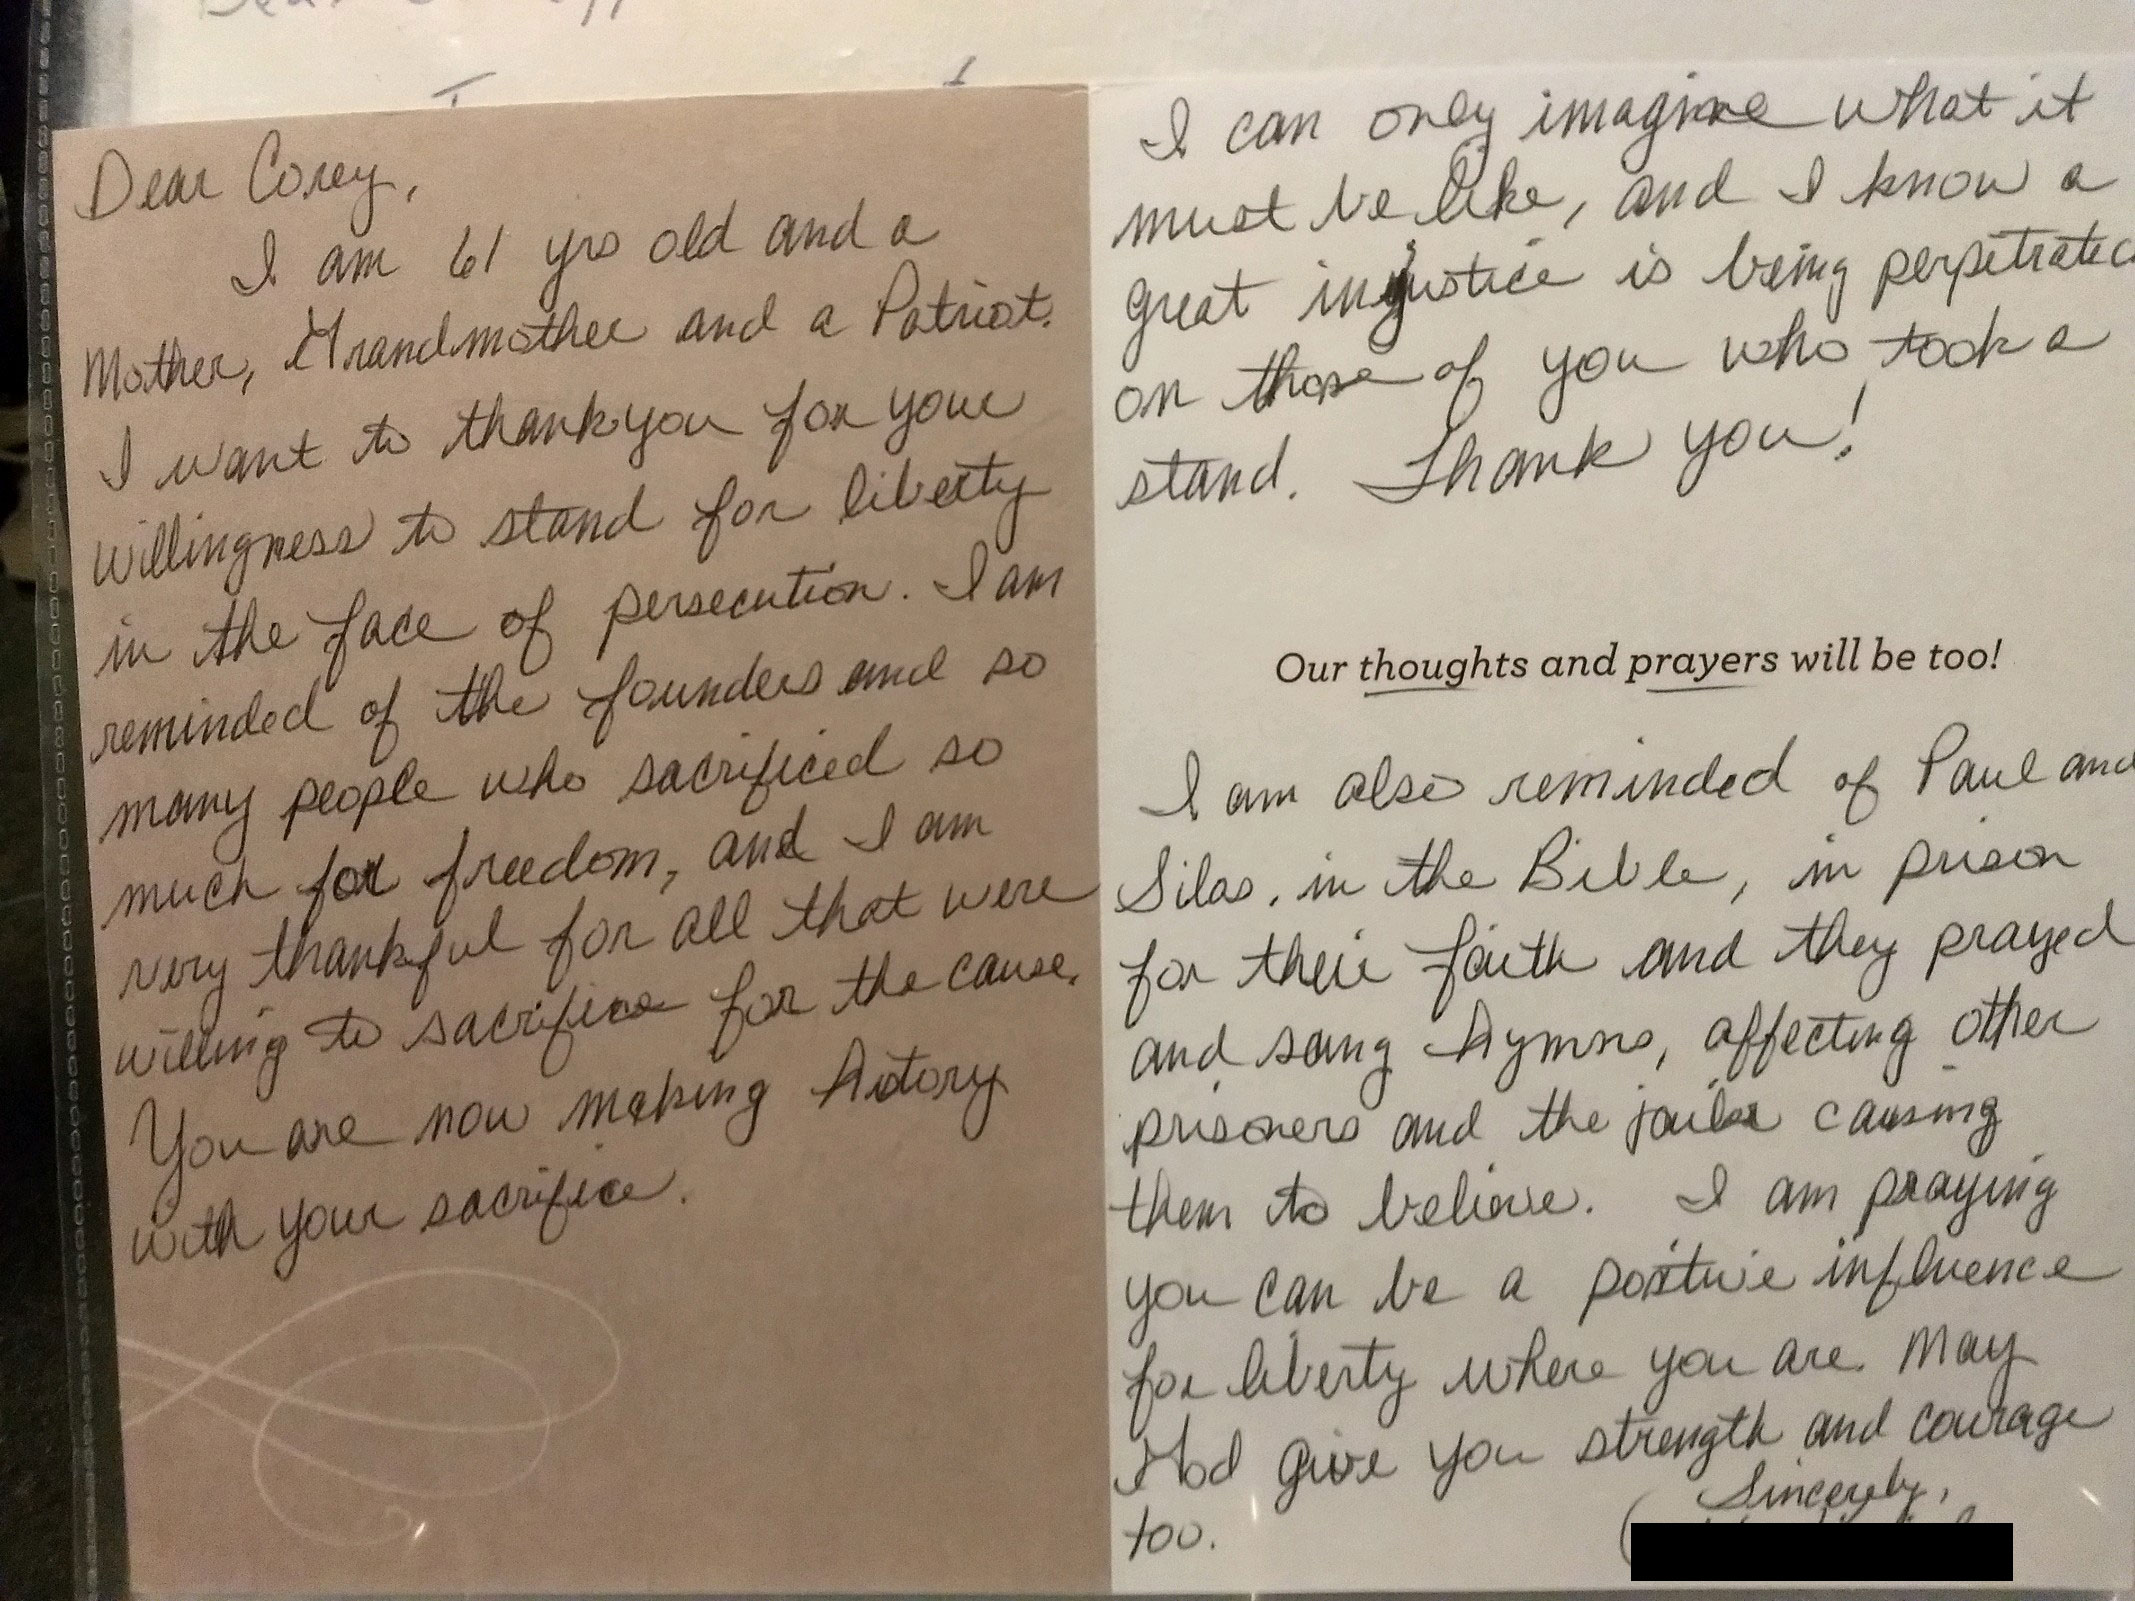 Dear Corey,
I am 61 yrs old and a
Mother, Grandmother and a Patriot.
I want to thank you for your
willingness to stand for liberty
in the face of persecution. I am
reminded of the founders and so
many people who sacrificed so
much for freedom, and I am
very thankful for all that were
willing to sacrifice for the cause.
You are now making history
with your sacrifice.
I can only imagine what it
must be like, and I know a
great injustice is being perpetrated
on those of you who took a
stand. Thank you!
Our thoughts and prayers will be too!
I am also reminded of Paul and
Silas, in the Bible, in prison
for their faith and they prayed
and sang hymns, affecting other
prisoners and the jailer causing
them to believe. I am praying
you can be a positive influence
for liberty where you are. May
God give you strength and courage
too.
Sincerely,